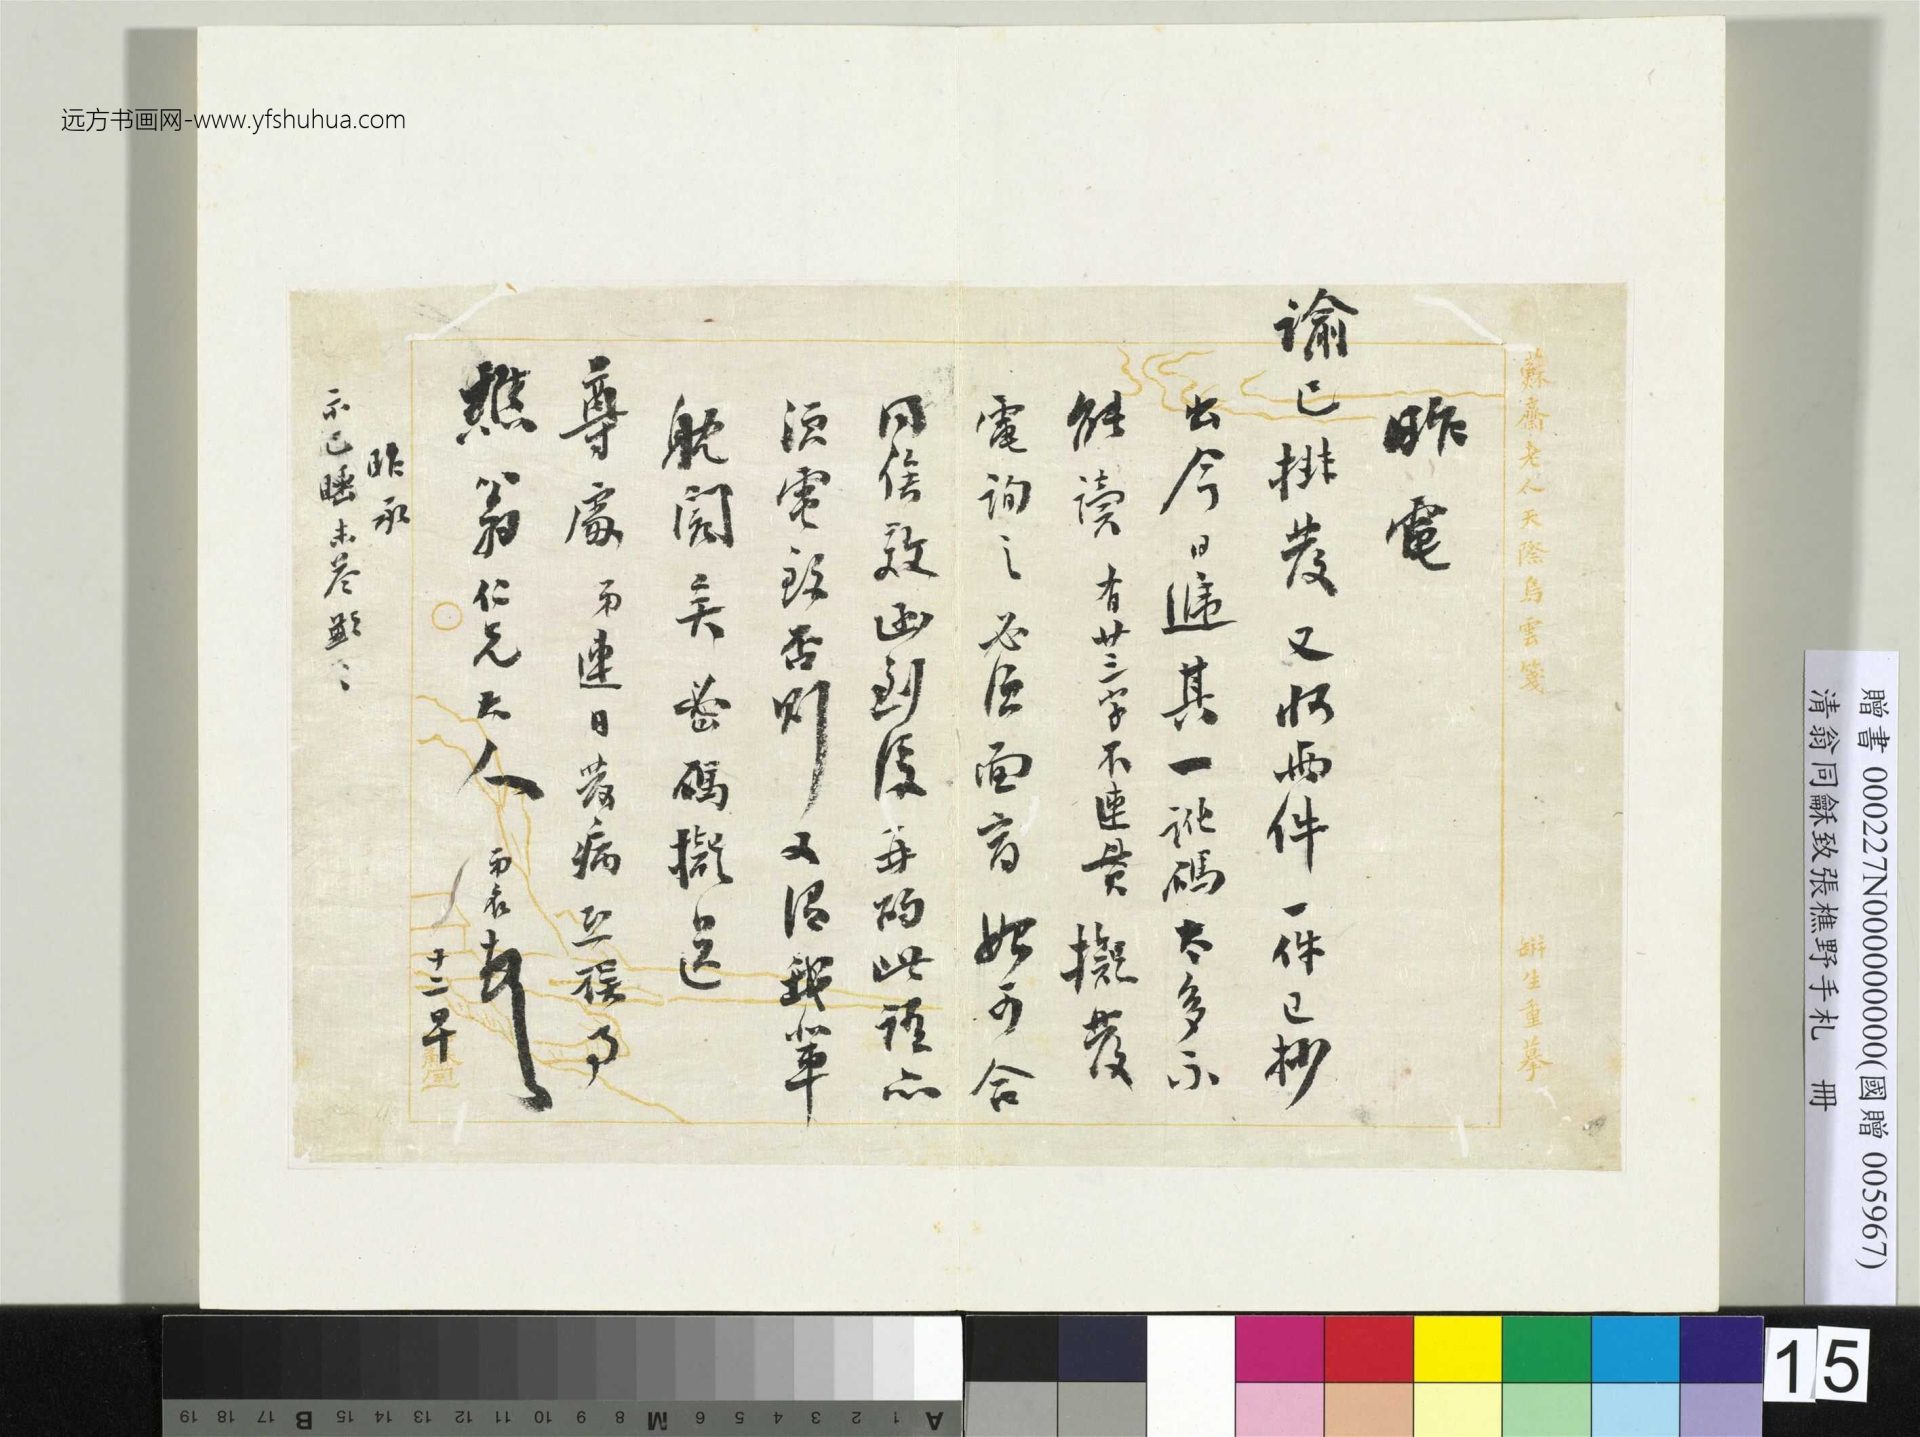 远方书画网-www.yfshuhua.com
蘇齋老人天際烏雲箋
昨電
諭已排發又將兩件一件已抄
出今日遞其一訛碼太多不
能讀有廿三字不連貫擬發
電詢之必須面商始可合
同俟致函到後再酌此語亦
須電致否則又謂我輩
躭閣矣密碼擬送
尊處弟連日發病
樵翁仁兄大人 弟
十二早
昨承
示已睡未答
贈書 000227N000000000(國贈 005967)
清翁同龢致張樵野手札 冊
15
A 1 2 3 4 5 6 M 8 9 10 11 12 13 14 15 B 17 18 19